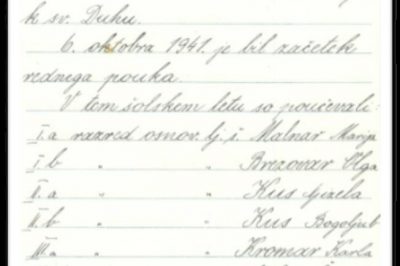 k sv. Duhu.
6. oktobra 1941. je bil začetek
rednega pouka.
V tem šolskem letu so poučevali:
I.a razred osnov. lj. š. Malnar Marija
I. b " " Brezovar Olga
II. a " " Kus Gizela
II. b " " Kus Bogoljub
III. a " " Kromar Karla